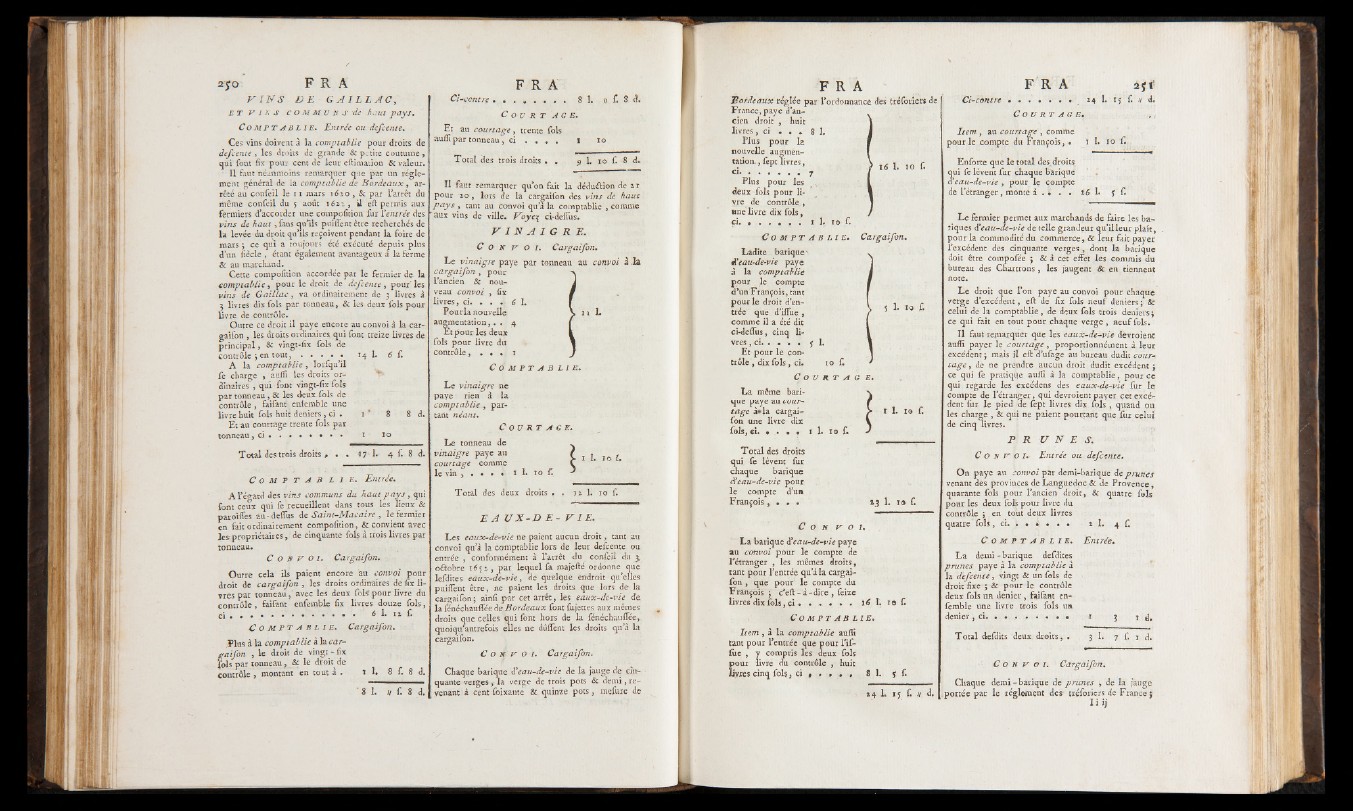 250 F R A
VINS DE GAILLAC,
ET VINS COMMUNS de haut pays.
COMPTABLIE. Entrée ou deſcente.
Ces vins doivent à la comptablie pour droits de
deſcente, les droits de grande & petite coutume,
qui ſont ſix pour cent de leur eſtimation & valeur.
Il faut néanmoins remarquer que par un régle-
ment général de la comptablie de Bordeaux, ar-
rêté au conſeil le 11 mars 1620, & par l'arrêt du
même conſeil du 5 août 1622, il eſt permis aux
fermiers d'accorder une compoſition ſur l'entrée des
vins de haut, ſans qu'ils puiſſent être recherchés de
la levée du droit qu'ils reçoivent pendant la foire de
mars; ce qui a toujours été exécuté depuis plus
d'un ſiècle, étant également avantageux à la ferme
& au marchand.
Cette compoſition accordée par le fermier de la
comptablie, pour le droit de deſcente, pour les
vins de Gaillac, va ordinairement de 3 livres à
3 livres dix ſols par tonneau, & les deux ſols pour
livre de contrôle.
Outre ce droit il paye encore au convoi à la car-
gaiſon, les droits ordinaires qui ſont treize livres de
principal, & vingt-ſix ſols de
contrôle; en tout, . . . . . 14 l. 6 ſ.
A la comptablie, lorſqu'il
ſe charge, auſſi les droits or-
dinaires, qui ſont vingt-ſix ſols
par tonneau, & les deux ſols de
contrôle, faiſant enſemble une
livre huit ſols huit deniers, ci . 1 8 8 d.
Et au courtage trente ſols par
tonneau, ci . . . . . . . . 1 10
Total des trois droits . . . 17 l. 4 ſ. 8 d.
COMPTABLIE. Entrée.
A l'égard des vins communs du haut pays, qui
ſont ceux qui ſe recueillent dans tous les lieux &
paroiſſes au-deſſus de Saint-Macaire, le fermier
en fait ordinairement compoſition, & convient avec
les propriétaires, de cinquante ſols à trois livres par
tonneau.
CONVOI. Cargaiſon.
Outre cela ils paient encore au convoi pour
droit de cargaiſon, les droits ordinaires de ſix li-
vres par tonneau, avec les deux ſols pour livre du
contrôle, faiſant enſemble ſix livres douze ſols,
ci . . . . . . . . . . . . 6 l. 12 ſ.
COMPTABLIE. Cargaiſon.
Plus à la comptablie à la car-
gaiſon, le droit de vingt-ſix
ſols par tonneau, & le droit de
contrôle, montant en tout à . 1 l. 8 ſ. 8 d.
8 l. // ſ. 8 d.
F R A
Ci-contre . . . . . . . . 8 l. // ſ. 8 d.
COURTAGE.
Et au courtage, trente ſols
auſſi par tonneau, ci . . . . 1 10
Total des trois droits . . 9 l. 10 ſ. 8 d.
Il faut remarquer qu'on fait la déduction de 21
pour 20, lors de la cargaiſon des vins de haut
pays, tant au convoi qu'à la comptablie, comme
aux vins de ville. Voyez ci-deſſus.
VINAIGRE.
CONVOI. Cargaiſon.
Le vinaigre paye par tonneau au convoi à la
cargaiſon, pour
l'ancien & nou-
veau convoi, ſix
livres, ci. . . . 6 l.
Pour la nouvelle
augmentation, . . 4
Et pour les deux
ſols pour livre du
contrôle, . . . 1
11 l.
COMPTABLIE.
Le vinaigre ne
paye rien à la
comptablie, par-
tant néant.
COURTAGE.
Le tonneau de
vinaigre paye au
courtage comme
le vin, . . . . 1 l. 10 ſ.
1 l. 10 ſ.
Total des deux droits . . 12 l. 10 ſ.
EAUX-DE-VIE.
Les eaux-de-vie ne paient aucun droit, tant au
convoi qu'à la comptablie lors de leur deſcente ou
entrée, conformément à l'arrêt du conſeil du 3
octobre 1652, par lequel ſa majeſté ordonne que
leſdites eaux-de-vie, de quelque endroit qu'elles
puiſſent être, ne paient les droits que lors de la
cargaiſon; ainſi par cet arrêt, les eaux-de-vie de
la ſénéchauſſée de Bordeaux ſont ſujettes aux mêmes
droits que celles qui ſont hors de la ſénéchauſſée,
quoiqu'autrefois elles ne duſſent les droits qu'à la
cargaiſon.
CONVOI. Cargaiſon.
Chaque barique d'eau-de-vie de la jauge de cin-
quante verges, la verge de trois pots & demi, re-
venant à cent ſoixante & quinze pots, meſure de
F R A
Bordeaux réglée par l'ordonnance des tréſoriers de
France, paye d'an-
cien droit, huit
livres, ci . . . 8 l.
Plus pour la
nouvelle augmen-
tation, ſept livres,
ci. . . . . . . 7
Plus pour les
deux ſols pour li-
vre de contrôle,
une livre dix ſols,
ci. . . . . . . 1 l. 10 ſ.
16 l. 10 ſ.
COMPTABLIE. Cargaiſon.
Ladite barique
d'eau-de-vie paye
à la comptablie
pour le compte
d'un François, tant
pour le droit d'en-
trée que d'iſſue,
comme il a été dit
ci-deſſus, cinq li-
vres, ci. . . . . 5 l.
Et pour le con-
trôle, dix ſols, ci. 10 ſ.
5 l. 10 ſ.
COURTAGE.
La même bari-
que paye au cour-
tage à la cargai-
ſon une livre dix
ſols, ci. . . . . 1 l. 10 ſ.
1 l. 10 ſ.
Total des droits
qui ſe lèvent ſur
chaque barique
d'eau-de-vie pour
le compte d'un
François, . . . 23 l. 10 ſ.
CONVOI.
La barique d'eau-de-vie paye
au convoi pour le compte de
l'étranger, les mêmes droits,
tant pour l'entrée qu'à la cargai-
ſon, que pour le compte du
François; c'eſt-à-dire, ſeize
livres dix ſols, ci . . . . . . 16 l. 10 ſ.
COMPTABLIE.
Item, à la comptablie auſſi
tant pour l'entrée que pour l'iſ-
ſue, y compris les deux ſols
pour livre du contrôle, huit
livres cinq ſols, ci . . . . . 8 l. 5 ſ.
24 l. 15 ſ. // d.
F R A 251
Ci-contre . . . . . . . 24 l. 15 ſ. // d.
COURTAGE.
Item, au courtage, comme
pour le compte du François, . 1 l. 10 ſ.
Enſorte que le total des droits
qui ſe lèvent ſur chaque barique
d'eau-de-vie, pour le compte
de l'étranger, monte à . . . . 26 l. 5 ſ.
Le fermier permet aux marchands de faire les ba-
riques d'eau-de-vie de telle grandeur qu'il leur plaît,
pour la commodité du commerce, & leur fait payer
l'excédent des cinquante verges, dont la barique
doit être compoſée; & à cet effet les commis du
bureau des Chartrons, les jaugent & en tiennent
note.
Le droit que l'on paye au convoi pour chaque
verge d'excédent, eſt de ſix ſols neuf deniers; &
celui de la comptablie, de deux ſols trois deniers;
ce qui fait en tout pour chaque verge, neuf ſols.
Il faut remarquer que les eaux-de-vie devroient
auſſi payer le courtage, proportionnément à leur
excédent; mais il eſt d'uſage au bureau dudit cour-
tage, de ne prendre aucun droit dudit excédent;
ce qui ſe pratique auſſi à la comptablie, pour ce
qui regarde les excédens des eaux-de-vie ſur le
compte de l'étranger, qui devroient payer cet excé-
dent ſur le pied de ſept livres dix ſols, quand on
les charge, & qui ne paient pourtant que ſur celui
de cinq livres.
PRUNES.
CONVOI. Entrée ou deſcente.
On paye au convoi par demi-barique de prunes
venant des provinces de Languedoc & de Provence,
quarante ſols pour l'ancien droit, & quatre ſols
pour les deux ſols pour livre du
contrôle; en tout deux livres
quatre ſols, ci. . . . . . . 2 l. 4 ſ.
COMPTABLIE. Entrée.
La demi-barique deſdites
prunes paye à la comptablie à
la deſcente, vingt & un ſols de
droit fixe; & pour le contrôle
deux ſols un denier, faiſant en-
ſemble une livre trois ſols un
denier, ci. . . . . . . . . 1 3 1 d.
Total deſdits deux droits, . 3 l. 7 ſ. 1 d.
CONVOI. Cargaiſon.
Chaque demi-barique de prunes, de la jauge
portée par le réglement des tréſoriers de France;
I i ij